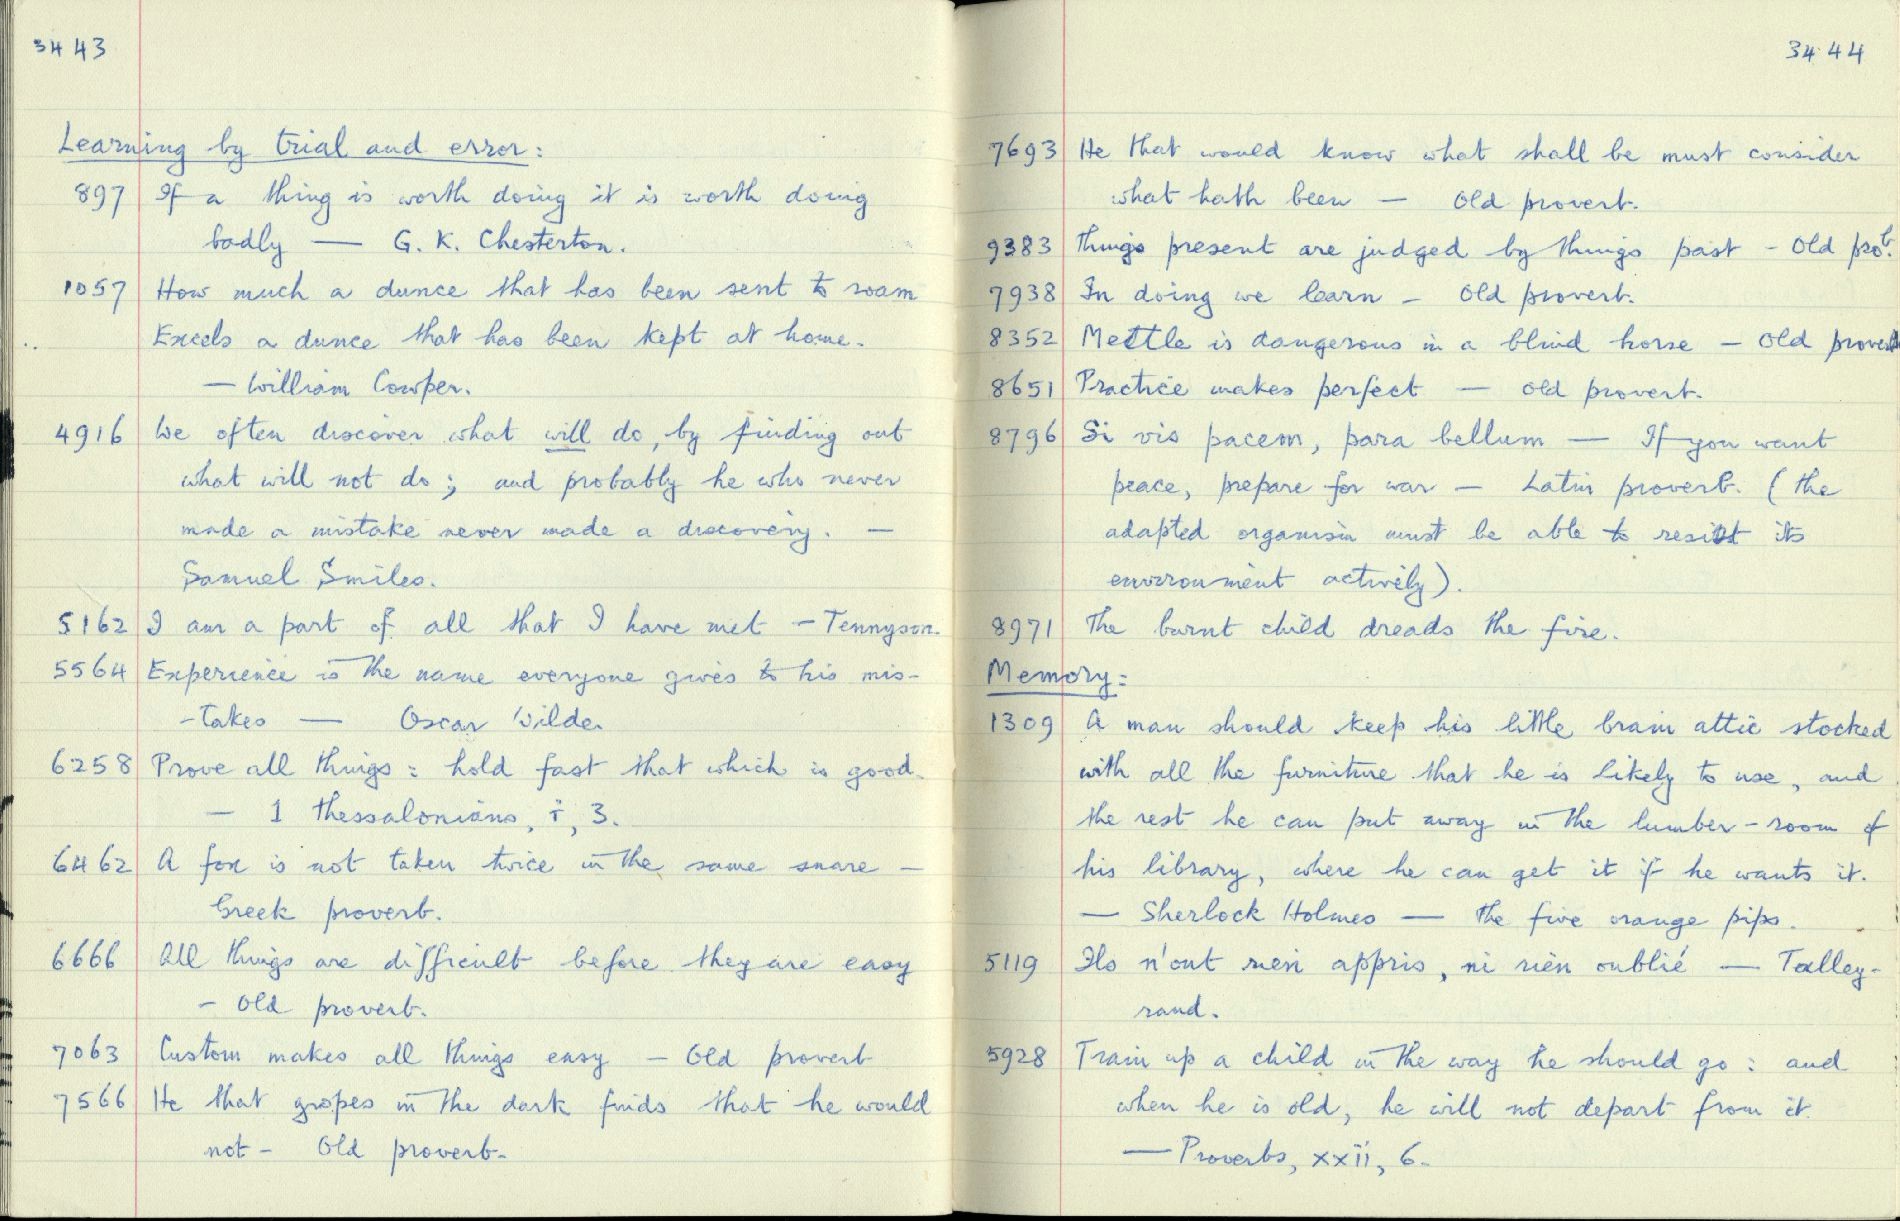 3443
Learning by trial and error:
897 If a thing is worth doing it is worth doing
badly — G. K. Chesterton.
1057 How much a dunce that has been sent to roam
Excels a dunce that has been kept at home.
— William Cowper.
4916 We often discover what will do, by finding out
what will not do; and probably he who never
made a mistake never made a discovery. —
Samuel Smiles.
5162 I am a part of all that I have met — Tennyson.
5564 Experience is the name everyone gives to his mis-
-takes — Oscar Wilde.
6258 Prove all things: hold fast that which is good.
— 1 Thessalonians, i, 3.
6462 A fox is not taken twice in the same snare —
Greek proverb.
6666 All things are difficult before they are easy
— Old proverb.
7063 Custom makes all things easy — Old proverb
7566 He that gropes in the dark finds that he would
not — Old proverb.
3444
7693 He that would know what shall be must consider
what hath been — Old proverb.
9383 Things present are judged by things past — Old prob.
7938 In doing we learn — Old proverb.
8352 Mettle is dangerous in a blind horse — Old proverb
8651 Practice makes perfect — Old proverb.
8796 Si vis pacem, para bellum — If you want
peace, prepare for war — Latin proverb. (The
adapted organism must be able to resist its
environment actively).
8971 The burnt child dreads the fire.
Memory:
1309 A man should keep his little brain attic stocked
with all the furniture that he is likely to use, and
the rest he can put away in the lumber-room of
his library, where he can get it if he wants it.
— Sherlock Holmes — The five orange pips.
5119 Ils n'ont rien appris, ni rien oublié — Talley-
rand.
5928 Train up a child in the way he should go: and
when he is old, he will not depart from it.
— Proverbs, xxii, 6.